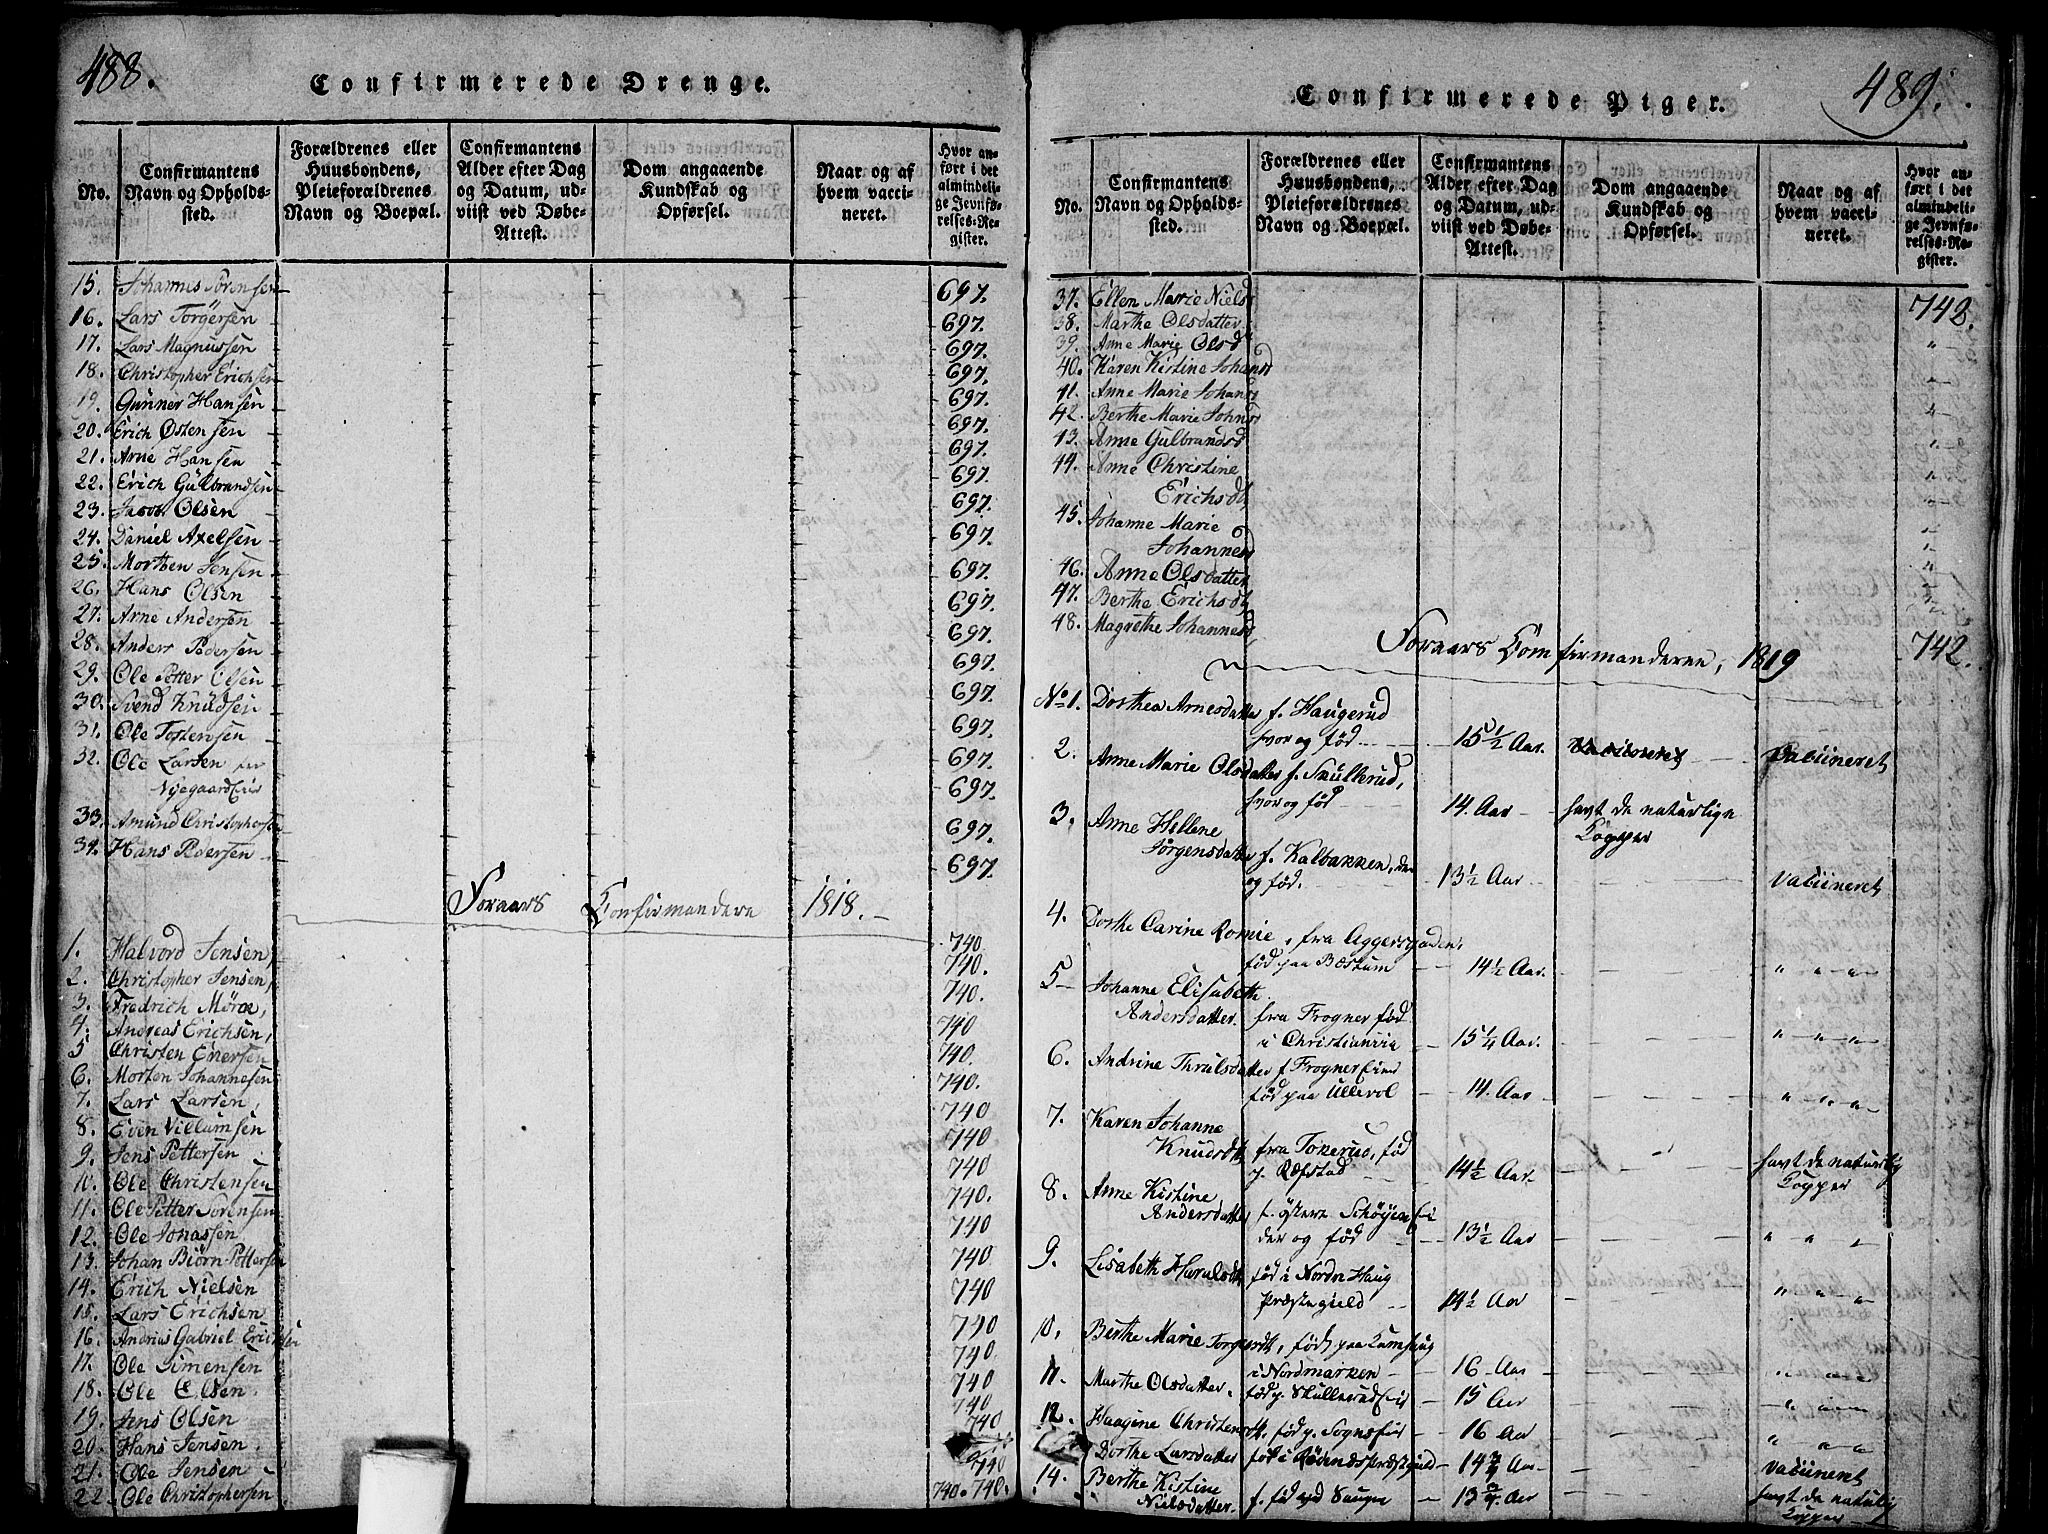 488.
Confirmerede Drenge.
No.
Confirmantens Navn og Opholdssted.
Forældrenes eller Huusbondens, Pleieforældrenes Navn og Boepæl.
Confirmantens Alder efter Dag og Datum, udviist ved Døbe-Attest.
Dom angaaende Kundskab og Opførsel.
Naar og af hvem vaccineret.
Hvor anført i det almindelige Jevnførelses-Register.
15. Johannes Sörensen 697.
16. Lars Törgersen 697.
17. Lars Magnussen 697.
18. Christopher Erichsen 697.
19. Gunner Hansen 697.
20. Erich Østensen 697.
21. Arne Hansen 697.
22. Erich Gulbrandsen 697.
23. Jacob Olsen 697.
24. Daniel Axelsen 697.
25. Morthen Jensen 697.
26. Hans Olsen 697.
27. Arne Andersen 697.
28. Anders Pedersen 697.
29. Ole Petter Olsen 697.
30. Svend Knudsen 697.
31. Ole Tostensen 697.
32. Ole Larsen
Nyegaardseie 697.
33. Amund Christophersen 697.
34. Hans Pedersen 697.
Foraars Confirmandere 1818.
1. Halvord Jensen, 740.
2. Christopher Jensen, 740.
3. Fredrich Möroe, 740.
4. Andreas Erichsen, 740
5 Christen Enersen 740.
6. Morten Johannesen 740.
7. Lars Larsen, 740
8. Even Villumsen 740
9. Jens Pettersen 740
10. Ole Christensen 740.
11. Ole Petter Sörensen 740
12. Ole Jonassen 740
13. Johan Biörn Pettersen 740
14. Erich Nielsen 740
15. Lars Erichsen 740
16. Andrias Gabriel Erichsen 740
17. Ole Simensen 740
18. Ole Olsen 740
19. Jens Olsen 740
20. Hans Jensen
21. Ole Jensen 740
22. Ole Christophersen 740. 740.
489.
Confirmerede Piger.
No.
Confirmantens Navn og Opholdssted.
Forældrenes eller Huusbondens, Pleieforældrenes Navn og Boepæl.
Confirmantens Alder efter Dag og Datum, udviist ved Døbe-Attest.
Dom angaaende Kundskab og Opførsel.
Naar og af hvem vaccineret.
Hvor anført i det almindelige Jevnførelses-Register.
37. Ellen Marie Nielsd 742.
38. Marthe Olsdatter "
39. Anne Marie Olsd "
40. Karen Kistine Johansd "
41. Anne Marie Johansd "
42. Berthe Marie Johnsd "
43. Anne Gulbrandsd "
44. Anne Christine
Erichsdt "
45. Johanne Marie
Johannesd "
46. Anne Olsdatter "
47. Berthe Erichsdt "
48. Magrethe Johannesd 742.
Foraars Comfirmanderne, 1819
No 1. Dorthea Arnesdatter f. Haugerud
hvor og född 15 1/2 Aar. Vaciineret
2. Anne Marie Olsdatter f. Skullerud,
hvor og född 14. Aar havt de naturlige
Kopper
3. Anne Hellene
Jörgensdatter f. Kalbakken, der
og född. 13 1/2 Aar Vaciineret
4. Dorthe Carine Romie, fra Aggersgaden,
född paa Bæstum 14 1/2 Aar. " " "
5 Johanne Elisabeth
Andersdatter. fra Frogner född
i Christiania 15 1/4 Aar. " " "
6. Andrine Thrulsdatter f Frognereiet
född paa Ullevol 14. Aar " " "
7. Karen Johanne
Knudsdt fra Tokerud, född
p. Refstad 14 1/2 Aar. havt de naturlig
Kopper
8. Anne Kistine
Andersdatter f. östere Schöyeneie
der og född 13 1/2 Aar " " "
9. Lisabeth Haralsdt född i Nordre Haug
Præstegield 14 1/2 Aar " " "
10. Berthe Marie Torgersdt, född paa
i Nordmarken 16 Aar " " "
11. Marthe Olsdatter. född p. Skullerudeie 15 Aar " " "
12. Haagine Christensdt. född p. Sognseie 16 Aar " " "
Dorthe Larsdatter född i Rödenæs præstgield 14 3/4 Aar Vaciineret
14. Berthe Kistine
Nielsdatter. f. född ved 13 3/4 Aar havt de naturlig
Kopper